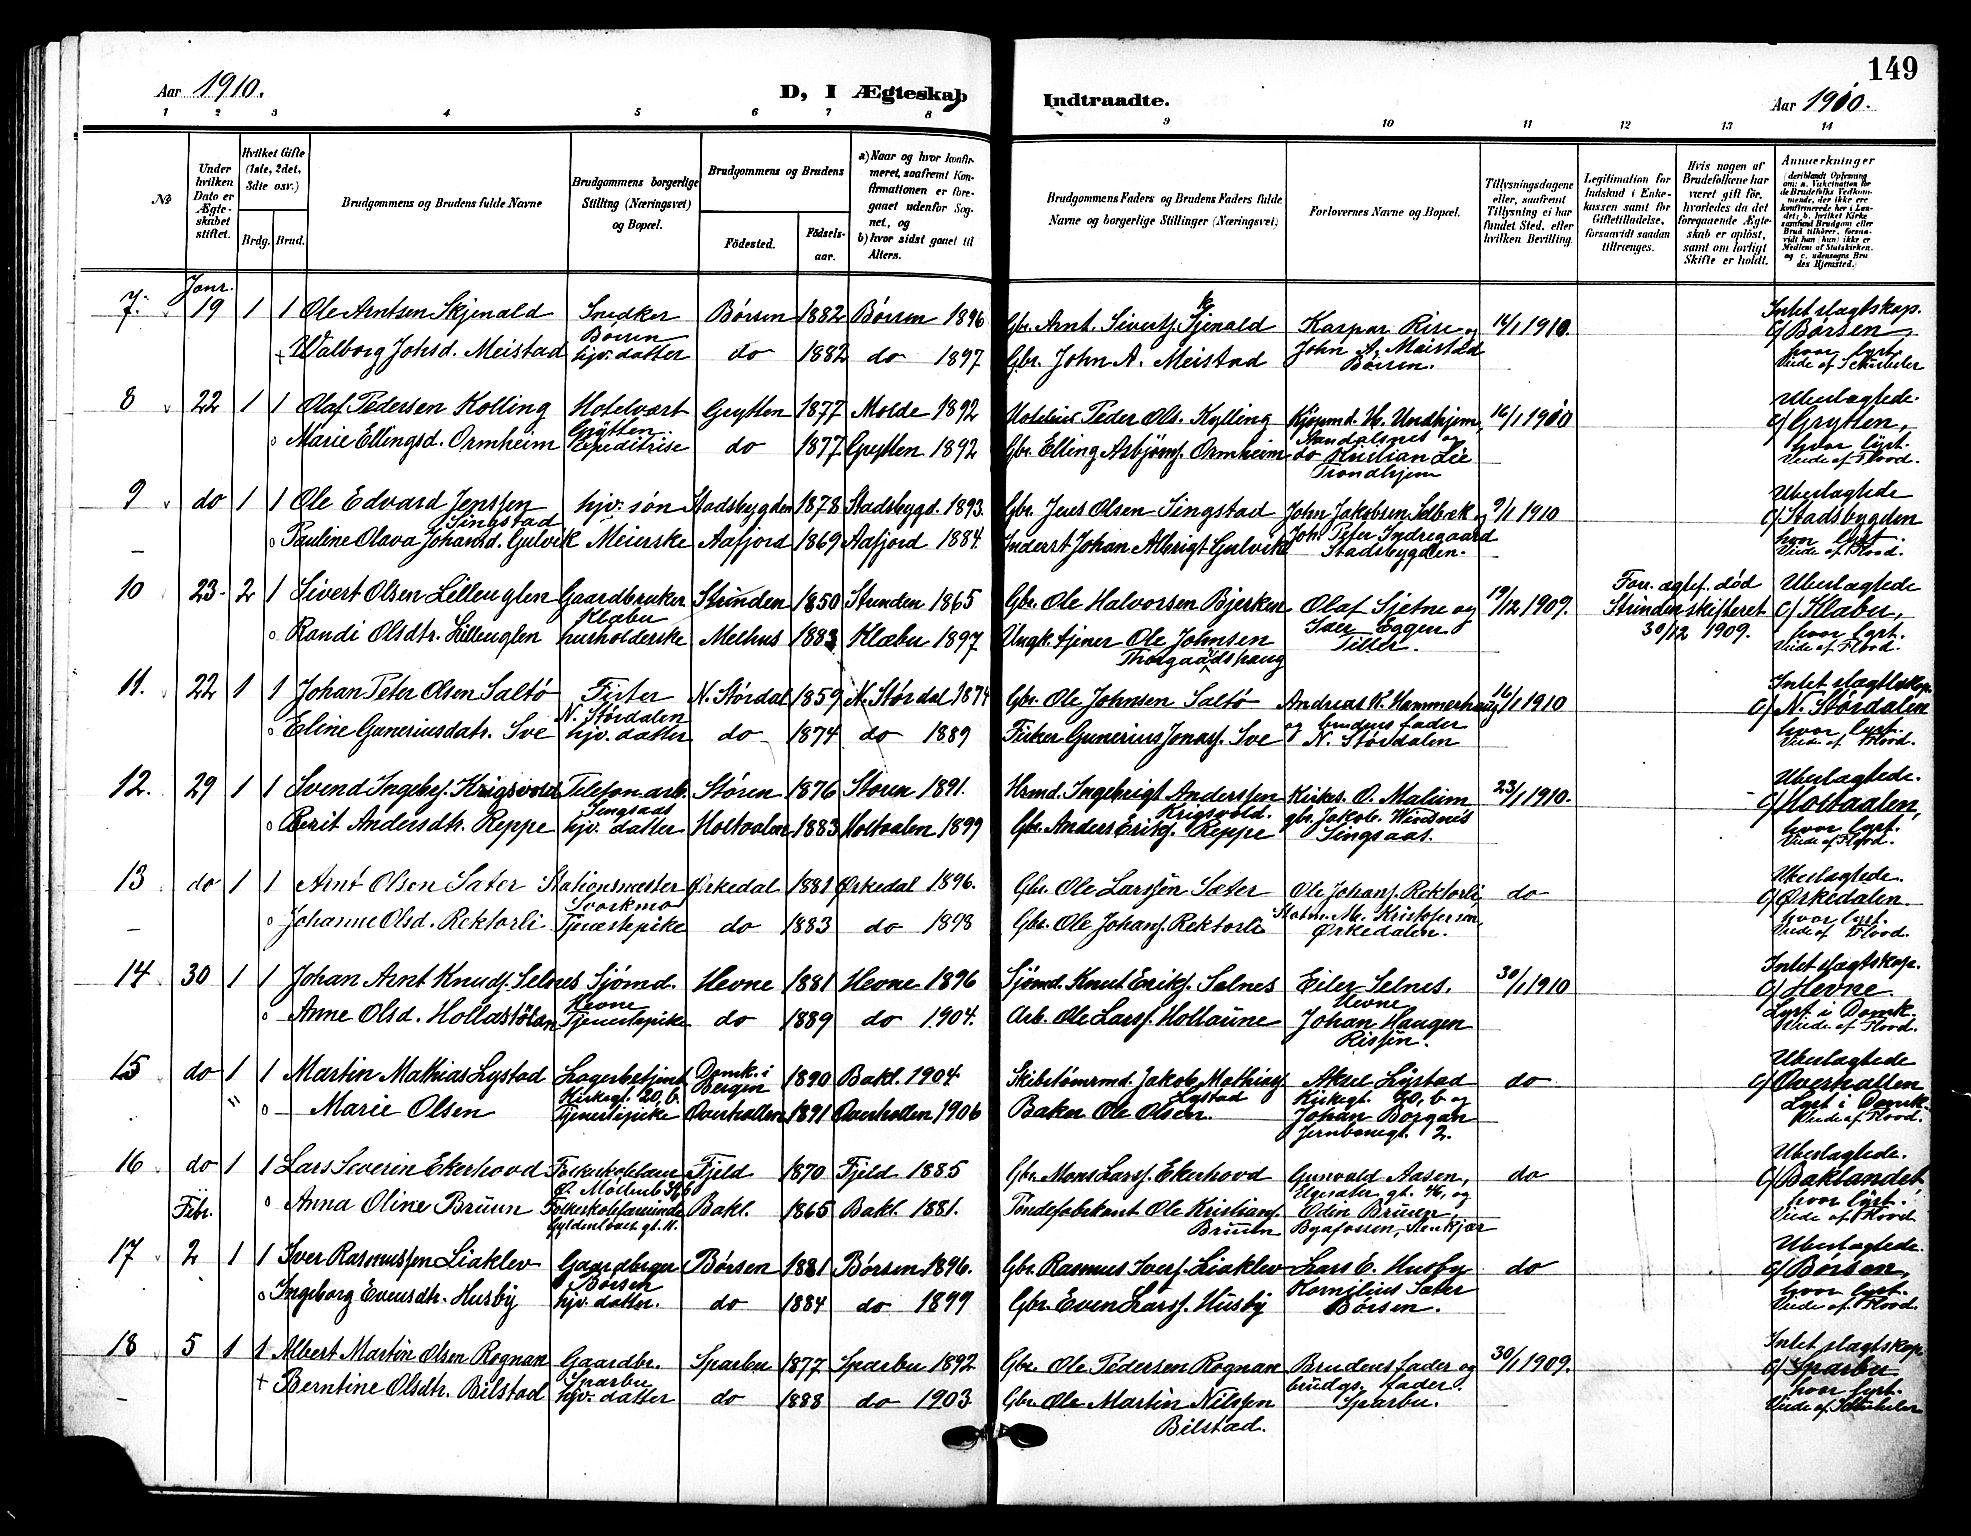 149
Aar 1910.
D, I Ægteskab
Indtraadte.
Aar 1910.
1 2 3 4 5 6 7 8 9 10 11 12 13 14
№
Under hvilken Dato er Ægteskabet stiftet.
Hvilket Gifte (1ste, 2det, 3die osv.)
Brdg. Brud.
Brudgommens og Brudens fulde Navne
Brudgommens borgerlige Stilling (Næringsvei) og Bopæl.
Brudgommens og Brudens
Födested.
Födsels-aar.
a) Naar og hvor konfirmeret, saafremt Konfirmationen er foregaaet udenfor Sognet, og
b) hvor sidst gaaet til Alters.
Brudgommens Faders og Brudens Faders fulde Navne og borgerlige Stillinger (Næringsvei)
Forlovernes Navne og Bopæl.
Tillysningsdagene eller, saafremt Tillysning ei har fundet Sted, efter hvilken Bevilling.
Legitimation for Indskud i Enkekassen samt for Giftetilladelse, forsaavidt saadan tiltrænges.
Hvis nogen af Brudefolkene har været gift för, hvorledes da det foregaaende Ægteskab er oplöst, samt om lovligt Skifte er holdt.
Anmerkninger
Janr.
7. 19 1 1 Ole Arntsen Skjenald Snedker Börsen Börsen 1882 Börsen 1896 Gbr. Arnt Siverts. Skjenald Kaspar Rise og 16/1 1910. Intet slagtskap.
+ Valborg Johsd. Meistad hjv. datter do 1882 do 1897 Gbr. John A. Meistad John A. Meistad Börsen. c/ Börsen, hvor lyst. Viede af Schubeler
8 22 1 1 Olaf Pedersen Kolling Hotelvært Grytten Grytten 1877 Molde 1892 Peder Ols. Kylling Kjöpmd. H. Undhjem, 16/1 1910 Ubeslagtede.
o Marie Ellingsd. Ormheim Expeditrise do 1877 Grytten 1892 Gbr. Elling Asbjörns. Ormheim Aandalsnes og do Kristian Lie Trondhjem c/ Grytten, hvor lyst. Viede af Flood.
9 do 1 1 Ole Edvard Jenssen Singstad hjv. sön Stadsbygden 1878 Stadsbygd. 1893. Gbr. Jens Olsen Singstad John Jakobsen Selbæk og 9/1 1910 Ubeslagtede
o Pauline Olava Johansd. Gulvik Meierske Aafjord 1869 Aafjord 1884. Inderst Johan Albrigt Gulvik Joh. Peter Indregaard Stadsbygden. c/ Stadsbygden hvor lyst. Viede af Flood.
10 23 2 1 Sivert Olsen Lilleuglen Gaardbruker Klæbu Strinden 1850 Strinden 1865 Gbr. Ole Halvorsen Bjerken Olaf Sjetne og 19/12 1909. Forr. ægtef. död Ubeslagtede
o Randi Olsdtr. Lilleuglen husholderske Melhus 1883 Klæbu 1897 Ungk. tjener Ole Johnsen Thorgaardshaug Iver Eggen Tiller. Strinden skifteret 30/12 1909. c/ Klæbu, hvor lyst. Viede af Flood.
11. 22 1 1 Johan Peter Olsen Saltö Fisker N. Stördalen N. Stördal 1859 N. Stördal 1874 Gbr. Ole Johnsen Saltö Andreas K. Hammerhaug 16/1 1910 Intet slagtskap.
o Eline Guneriusdatr. Sve hjv. datter do 1874 do 1889 Fisker Gunerius Jonass. Sve og brudens fader N. Stördalen c/ N. Stördalen hvor lyst. Viede af Flood.
12. 29 1 1 Svend Ingebr. Krigsvold Telefonarb. Singsaas Stören 1876 Stören 1891. Hsmd. Ingebrigt Anderssen Krigsvold. Kirkes. O. Malum 23/1 1910. Ubeslagtede.
o Berit Andersdtr. Reppe hjv. datter Holtaalen 1883 Holtaalen 1899 Gbr. Anders Eriks. Reppe gbr. Jakob Windsnes Singsaas. c/ Holtaalen, hvor lyst. Viede af Flood.
13 do 1 1 Arnt Olsen Sæter Stationsmester Svorkmo Örkedal 1881 Örkedal 1896. Gbr. Ole Larssen Sæter Ole Johans. Rektorli, do Ubeslagtede.
o Johanne Olsd. Rektorli Tjenestepike do 1883 do 1898 Gbr. Ole Johans. Rektorli M. Kristofersen, Örkedalen. c/ Örkedalen. hvor lyst. Viede af Flood.
14 30 1 1 Johan Arnt Knuds. Selnes Sjömd. Hevne Hevne 1881 Hevne 1896 Sjömd. Knut Eriks. Selnes Eiler Selnes. Hevne 30/1 1910 Intet slagtskap.
o Anne Olsd. Hollastölan Tjenestepike do 1889 do 1904. Arb. Ole Larss. Hollaune Johan Haugen Rissen. c/ Hevne. Lyst i Domk. Viede af Flood.
15 do 1 1 Martin Mathias Lystad Lagerbetjent Kirkegt. 20, b. Domk. i Bergen 1890 Bakl. 1904 Skibstömrmd. Jakob Mathias Lystad Aksel Lystad do Ubeslagtede
" o Marie Olsen Tjenestepike Overhallen 1891 Overhallen 1906 Baker Ole Olsen. Kirkegt. 20, b og Johan Borgan Jernbanegt. 2. c/ Overhallen Lyst i Domk. Viede af Flood.
16 do 1 1 Lars Severin Ekerhovd Ö. Möllenb. 39, b Fjeld 1870 Fjeld 1885 Gbr. Mons Larss. Ekerhovd Gunvald Aasen, do Ubeslagtede.
o Anna Oline Bruun Folkeskolelærerinde Gyldenlöves gt. 11. Bakl. 1865 Bakl. 1881. Töndefabrikant Ole Kristians. Bruun Elgesæter gt. 46, og Odin Bruun, Byafossen, Stenkjær c/ Baklandet hvor lyst. Viede af Flood
Febr.
17 2 1 1 Iver Rasmussen Liaklev Gaardbruger Börsen Börsen 1881 Börsen 1896. Gbr. Rasmus Ivers. Liaklev Lars E. Husby do Ubeslagtede.
o Ingeborg Evensdtr. Husby hjv. datter. do 1884 do 1899 Gbr. Even Larss. Husby Kornilius Sæter Börsen. c/ Börsen, hvor lyst. Viede af Flood.
18 5 1 1 Albert Martin Olsen Rognan Gaardbr. Sparbu Sparbu 1877 Sparbu 1892 Gbr. Ole Pedersen Rognan Brudens fader og 30/1 1909. Intet slagtskap
+ Berntine Olsdtr. Bilstad hjv. datter do 1888 do 1903 Gbr. Ole Martin Nilssen Bilstad. brudgs. fader. Sparbu. c/ Sparbu hvor lyst. Viede af Schubeler